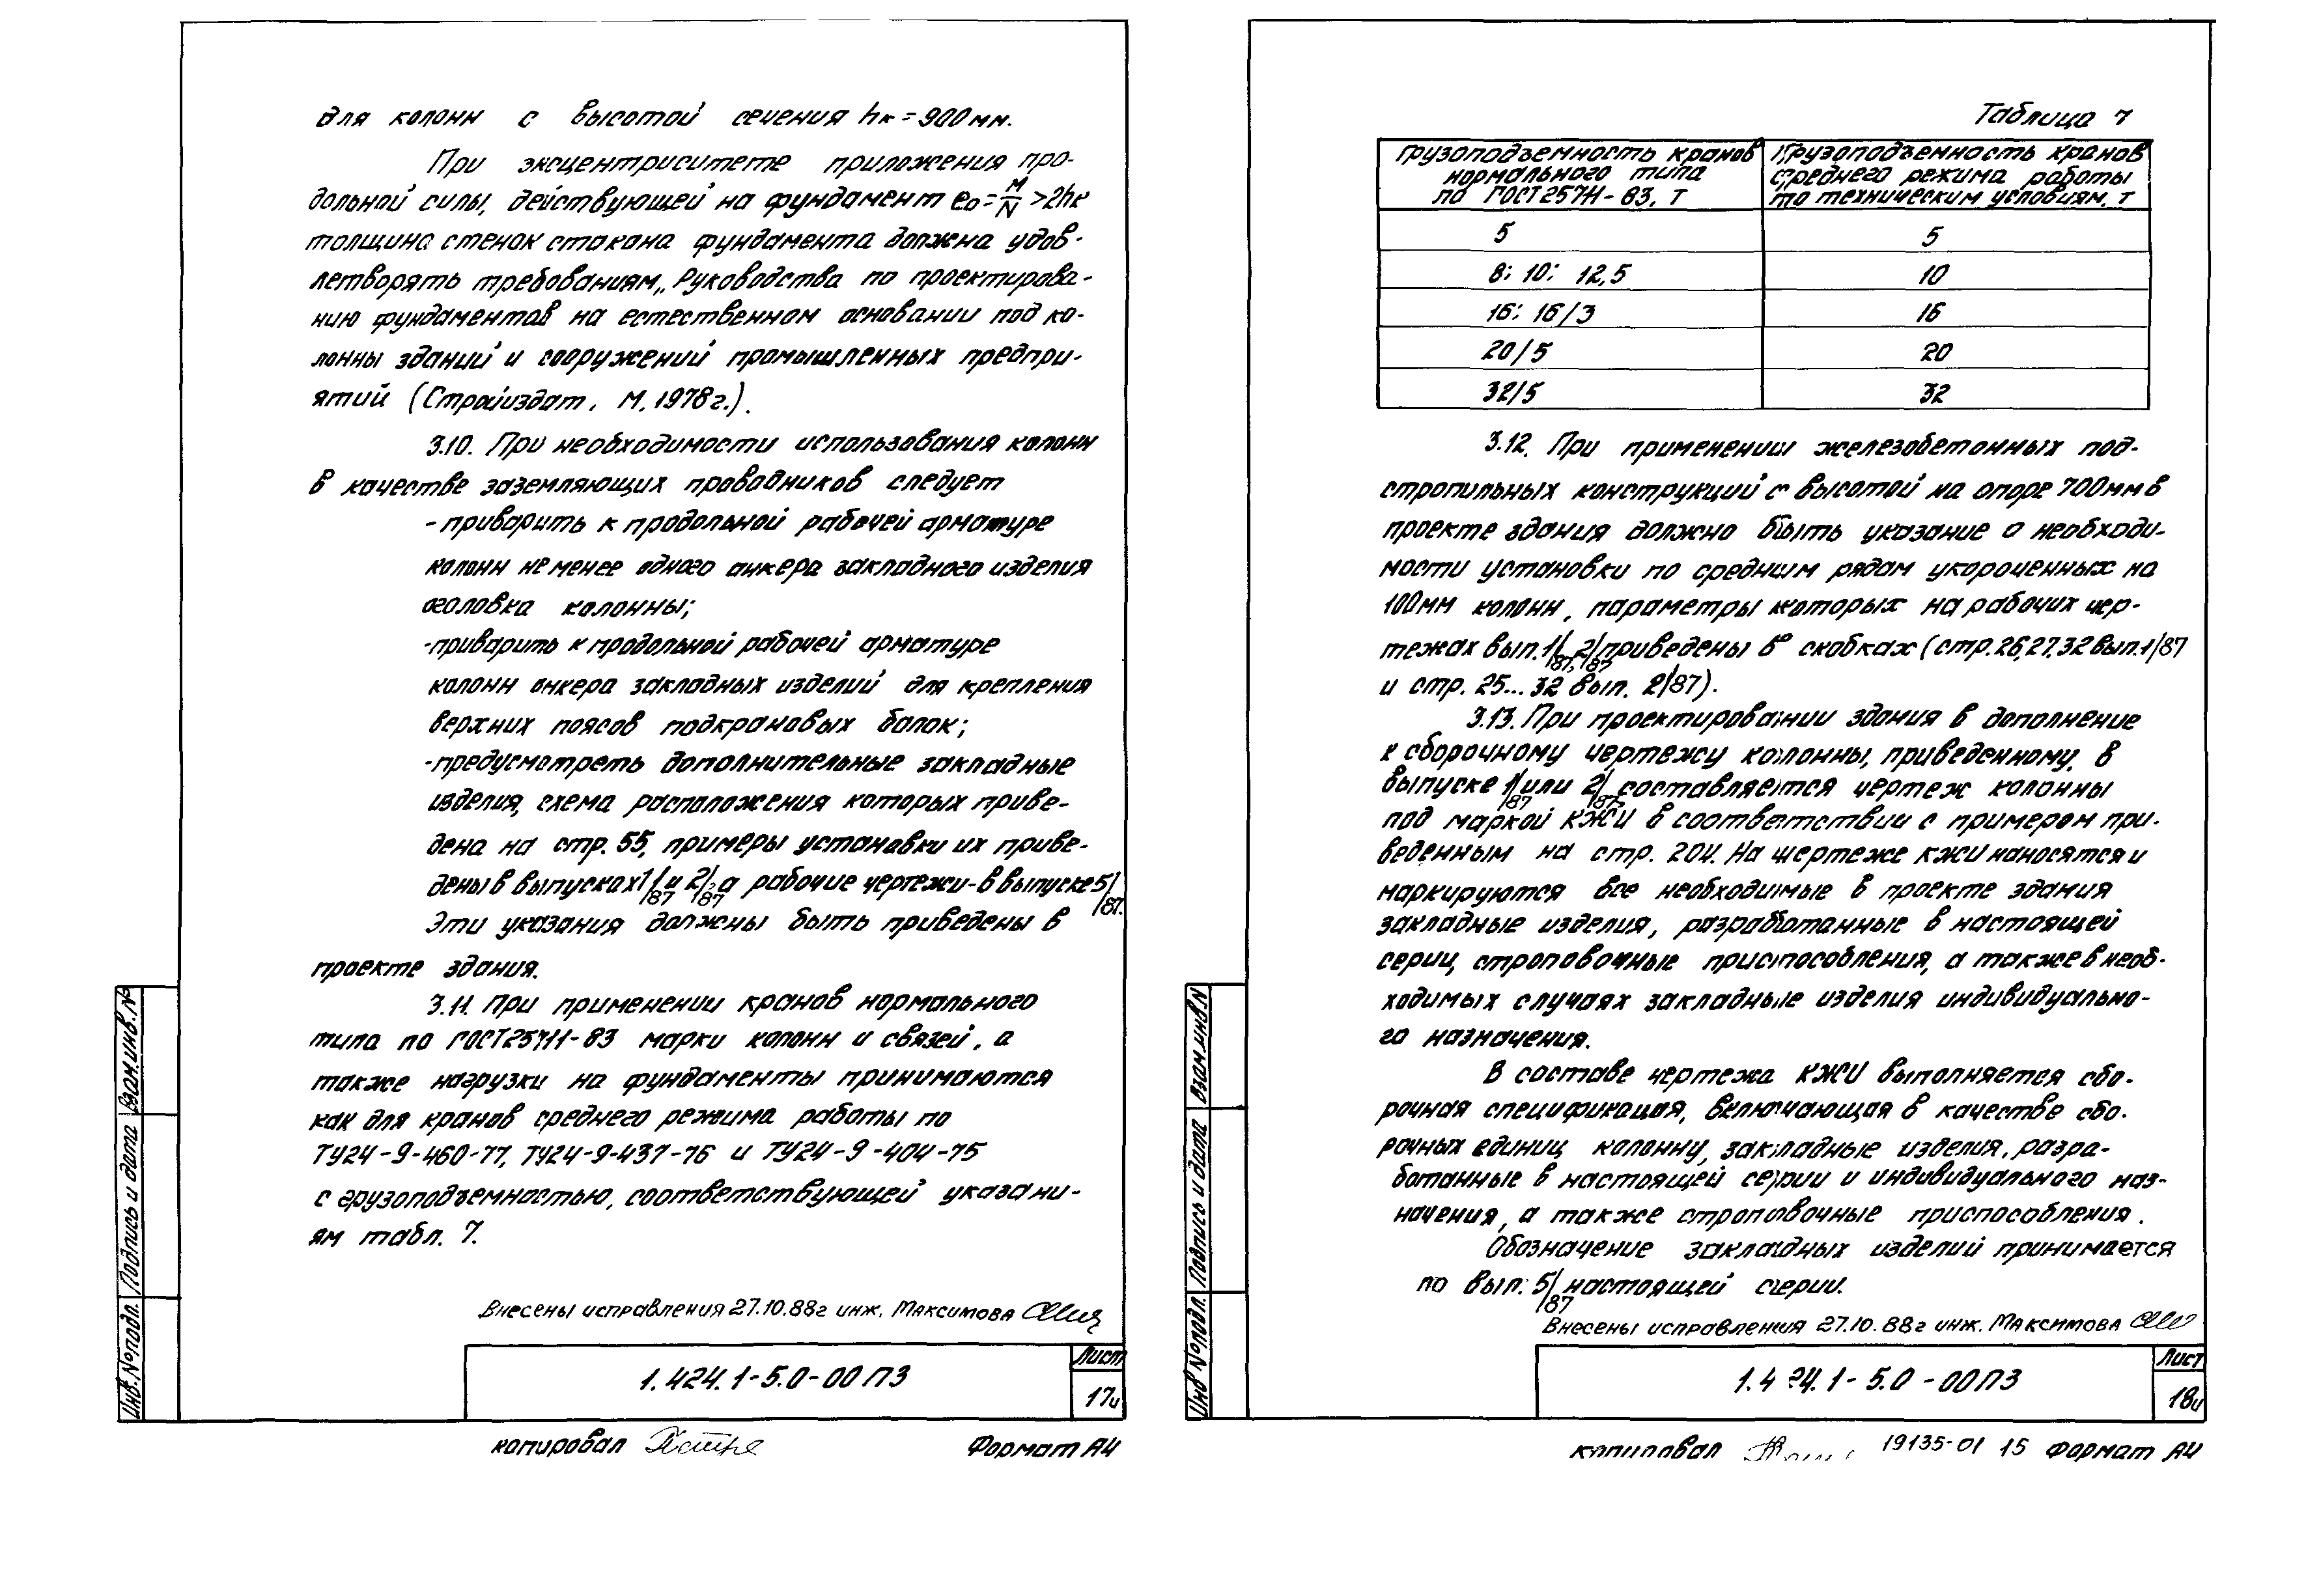 для колонн с высотой сечения hк = 900 мм.
При эксцентриситете приложения про-
дольной силы, действующей на фундамент e₀ = M/N > 2hк
толщина стенок стакана фундамента должна удов-
летворять требованиям „Руководства по проектирова-
нию фундаментов на естественном основании под ко-
лонны зданий и сооружений промышленных предпри-
ятий (Стройиздат, М, 1978 г.).
3.10. При необходимости использования колонн
в качестве заземляющих проводников следует
- приварить к продольной рабочей арматуре
колонн не менее одного анкера закладного изделия
оголовка колонны;
- приварить к продольной рабочей арматуре
колонн анкера закладных изделий для крепления
верхних поясов подкрановых балок;
- предусмотреть дополнительные закладные
изделия, схема расположения которых приве-
дена на стр. 55, примеры установки их приве-
дены в выпусках 1/87 и 2/87, а рабочие чертежи - в выпуске 5/87.
Эти указания должны быть приведены в
проекте здания.
3.11. При применении кранов нормального
типа по ГОСТ 25711-83 марки колонн и связей, а
также нагрузки на фундаменты принимаются
как для кранов среднего режима работы по
ТУ24-9-460-77, ТУ24-9-437-76 и ТУ24-9-404-75
с грузоподъемностью, соответствующей указани-
ям табл. 7.
Внесены исправления 27.10.88г инж. Максимова
1.424.1-5.0-00ПЗ
Лист
17и
Взам.инв.№
Подпись и дата
Инв.№подл.
копировал
Формат А4
Таблица 7
Грузоподъемность кранов нормального типа по ГОСТ 25711-83, т
Грузоподъемность кранов среднего режима работы по техническим условиям, т
5 5
8; 10; 12,5 10
16; 16/3 16
20/5 20
32/5 32
3.12. При применении железобетонных под-
стропильных конструкций с высотой на опоре 700мм в
проекте здания должно быть указание о необходи-
мости установки по средним рядам укороченных на
100мм колонн, параметры которых на рабочих чер-
тежах вып. 1/87, 2/87 приведены в скобках (стр. 26, 27, 32 вып. 1/87
и стр. 25...32 вып. 2/87).
3.13. При проектировании здания в дополнение
к сборочному чертежу колонны, приведенному в
выпуске 1/87 или 2/87, составляется чертеж колонны
под маркой КЖИ в соответствии с примером при-
веденным на стр. 204. На чертеже КЖИ наносятся и
маркируются все необходимые в проекте здания
закладные изделия, разработанные в настоящей
серии, строповочные приспособления, а также в необ-
ходимых случаях закладные изделия индивидуально-
го назначения.
В составе чертежа КЖИ выполняется сбо-
рочная спецификация, включающая в качестве сбо-
рочных единиц колонну, закладные изделия, разра-
ботанные в настоящей серии и индивидуального наз-
начения, а также строповочные приспособления.
Обозначение закладных изделий принимается
по вып. 5/87 настоящей серии.
Внесены исправления 27.10.88г инж. Максимова
1.424.1-5.0-00ПЗ
Лист
18и
Взам.инв№
Подпись и дата
Инв №подл.
копировал
19135-01 15 Формат А4